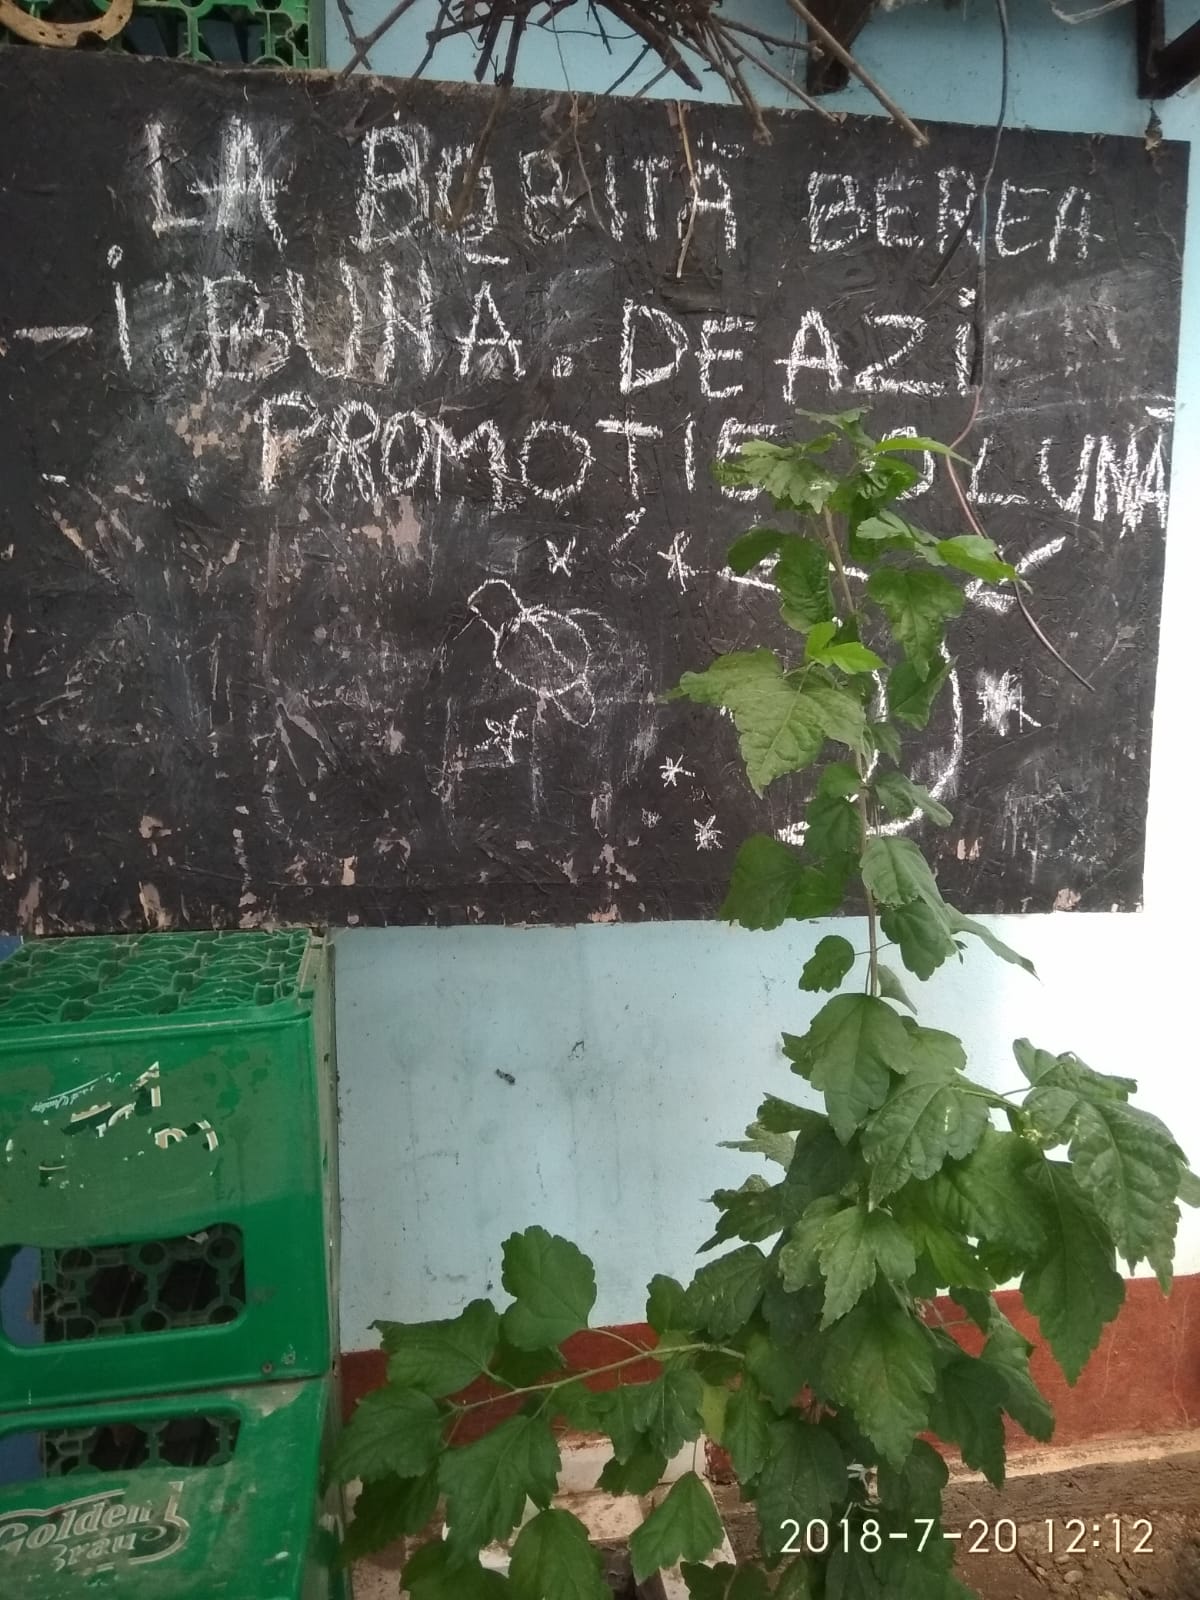 LA BOBIȚĂ BEREA
- i. BUNĂ. DE AZI
PROMOȚIE O LUNĂ
Golden
Brau
2018-7-20 12:12